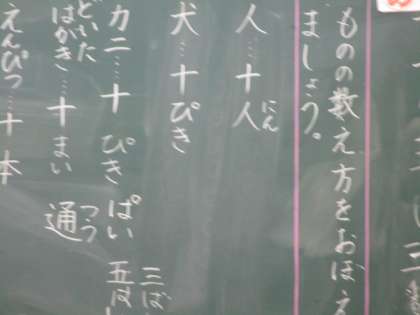 ものの数え方をおぼえ
ましょう。
人…十人
にん
犬…十ぴき
カニ…十 ぴき ぱい 三ば
五は
どいた
はがき…十まい 通
つう
えんぴつ…十本